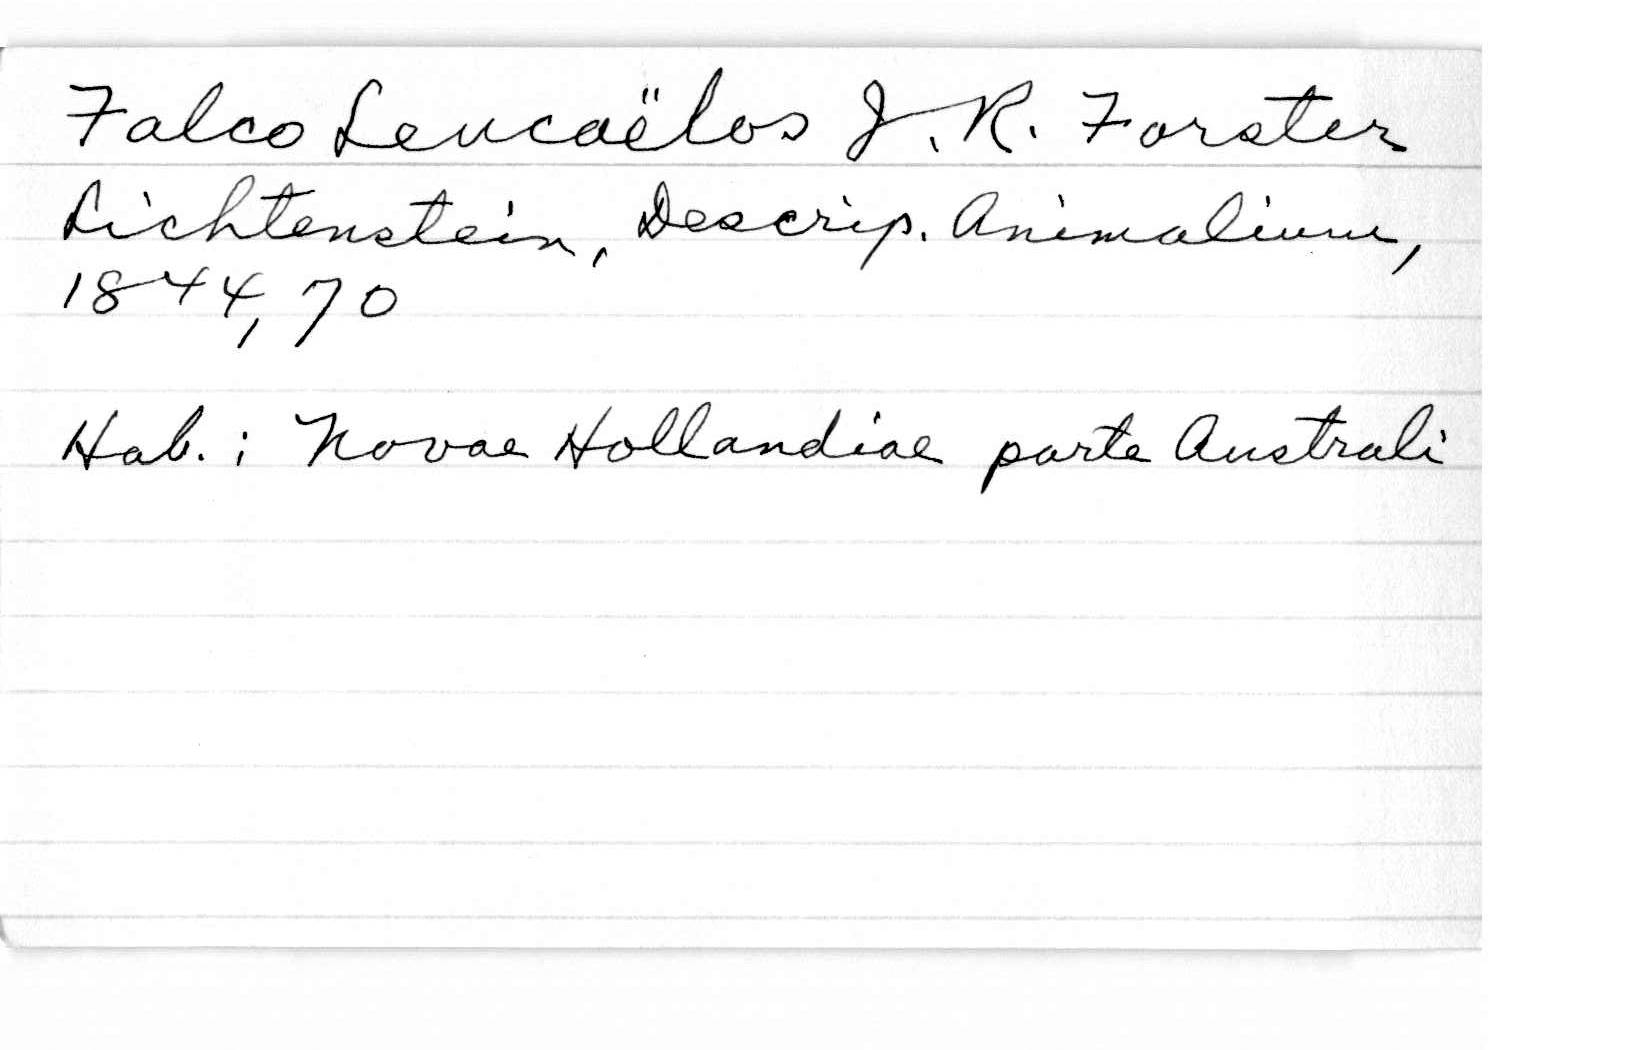 Falco Leucaëlos J. R. Forster
Lichtenstein, Descrip. Animalium,
1844, 70
Hab. ; Novae Hollandiae parte Australi